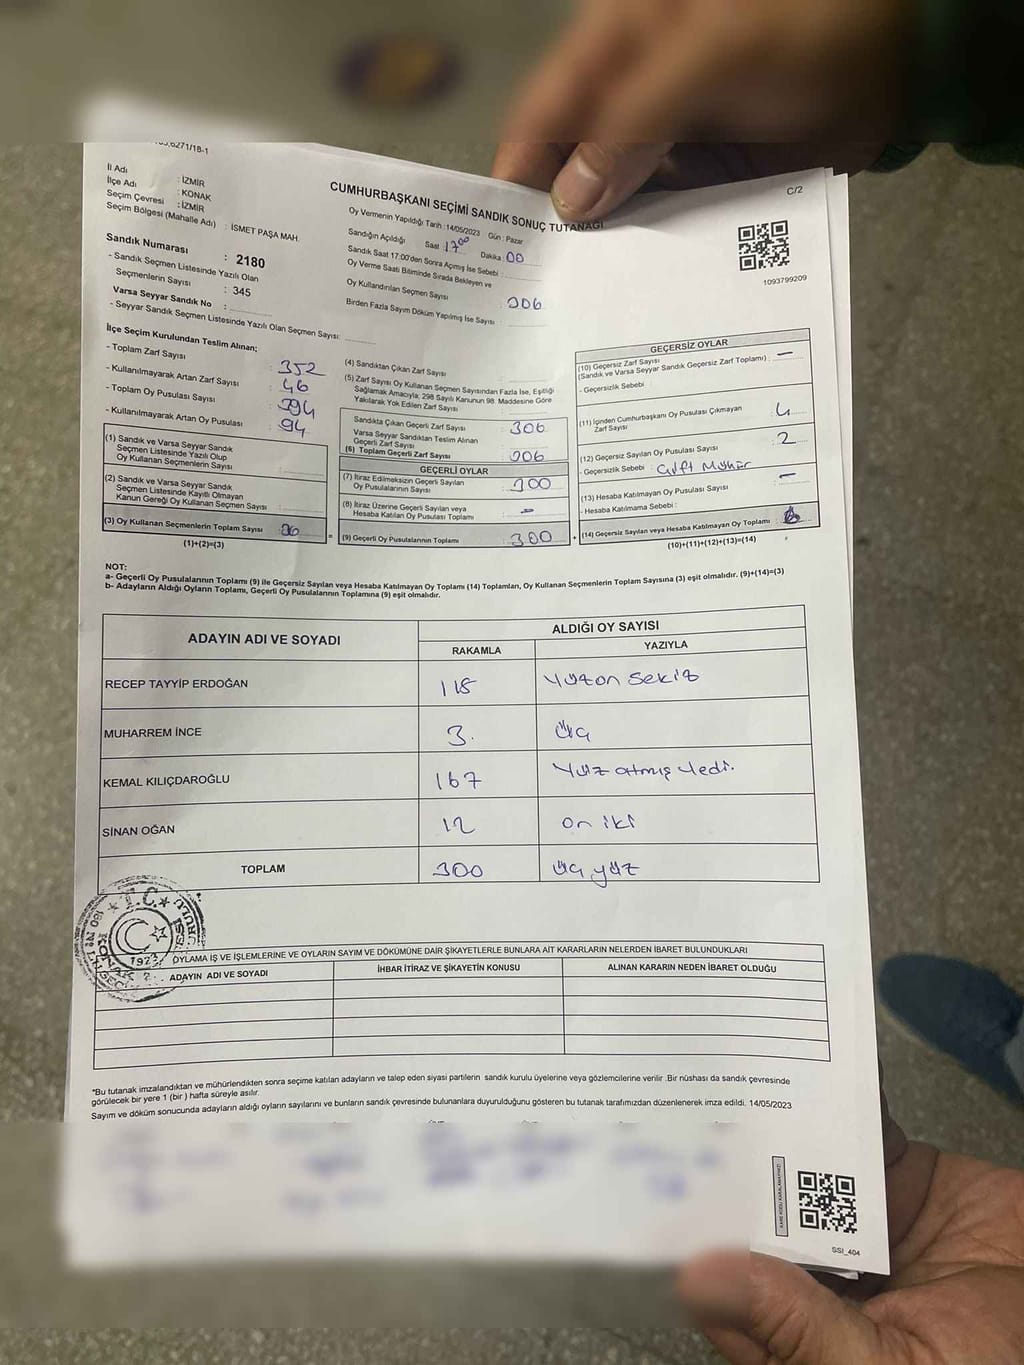 6271/1B-1
C/2
İl Adı : İZMİR
İlçe Adı : KONAK
Seçim Çevresi : İZMİR
Seçim Bölgesi (Mahalle Adı) : İSMET PAŞA MAH.
Sandık Numarası : 2180
- Sandık Seçmen Listesinde Yazılı Olan
Seçmenlerin Sayısı : 345
Varsa Seyyar Sandık No :
- Seyyar Sandık Seçmen Listesinde Yazılı Olan Seçmen Sayısı:
CUMHURBAŞKANI SEÇİMİ SANDIK SONUÇ TUTANAĞI
Oy Vermenin Yapıldığı Tarih :14/05/2023 Gün : Pazar
Sandığın Açıldığı Saat : 17⁰⁰ Dakika : 00
Sandık Saat 17:00'den Sonra Açmış İse Sebebi :
Oy Verme Saati Bitiminde Sırada Bekleyen ve
Oy Kullandırılan Seçmen Sayısı : 306
Birden Fazla Sayım Döküm Yapılmış İse Sayısı :
1093799209
İlçe Seçim Kurulundan Teslim Alınan;
- Toplam Zarf Sayısı : 352
- Kullanılmayarak Artan Zarf Sayısı : 46
- Toplam Oy Pusulası Sayısı : 394
- Kullanılmayarak Artan Oy Pusulası : 94
(1) Sandık ve Varsa Seyyar Sandık
Seçmen Listesinde Yazılı Olup
Oy Kullanan Seçmenlerin Sayısı
(2) Sandık ve Varsa Seyyar Sandık
Seçmen Listesinde Kayıtlı Olmayan
Kanun Gereği Oy Kullanan Seçmen Sayısı
(3) Oy Kullanan Seçmenlerin Toplam Sayısı
(1)+(2)=(3)
(4) Sandıktan Çıkan Zarf Sayısı
(5) Zarf Sayısı Oy Kullanan Seçmen Sayısından Fazla İse, Eşitliği
Sağlamak Amacıyla; 298 Sayılı Kanunun 98. Maddesine Göre
Yakılarak Yok Edilen Zarf Sayısı
Sandıkta Çıkan Geçerli Zarf Sayısı : 306
Varsa Seyyar Sandıktan Teslim Alınan
Geçerli Zarf Sayısı
(6) Toplam Geçerli Zarf Sayısı : 306
GEÇERLİ OYLAR
(7) İtiraz Edilmeksizin Geçerli Sayılan
Oy Pusulalarının Sayısı : 300
(8) İtiraz Üzerine Geçerli Sayılan veya
Hesaba Katılan Oy Pusulası Toplamı : -
(9) Geçerli Oy Pusulalarının Toplamı : 300
GEÇERSİZ OYLAR
(10) Geçersiz Zarf Sayısı
(Sandık ve Varsa Seyyar Sandık Geçersiz Zarf Toplamı) : -
- Geçersizlik Sebebi :
(11) İçinden Cumhurbaşkanı Oy Pusulası Çıkmayan
Zarf Sayısı : 4
(12) Geçersiz Sayılan Oy Pusulası Sayısı : 2
- Geçersizlik Sebebi : Çift Mühür
(13) Hesaba Katılmayan Oy Pusulası Sayısı : -
- Hesaba Katılmama Sebebi :
(14) Geçersiz Sayılan veya Hesaba Katılmayan Oy Toplamı : 6
(10)+(11)+(12)+(13)=(14)
NOT:
a- Geçerli Oy Pusulalarının Toplamı (9) ile Geçersiz Sayılan veya Hesaba Katılmayan Oy Toplamı (14) Toplamları, Oy Kullanan Seçmenlerin Toplam Sayısına (3) eşit olmalıdır. (9)+(14)=(3)
b- Adayların Aldığı Oyların Toplamı, Geçerli Oy Pusulalarının Toplamına (9) eşit olmalıdır.
ADAYIN ADI VE SOYADI ALDIĞI OY SAYISI
RAKAMLA YAZIYLA
RECEP TAYYİP ERDOĞAN 118 Yüzon sekiz
MUHARREM İNCE 3. Üç
KEMAL KILIÇDAROĞLU 167 Yüz altmış Yedi.
SİNAN OĞAN 12 on iki
TOPLAM 300 Üç yüz
T.C.
1923
OYLAMA İŞ VE İŞLEMLERİNE VE OYLARIN SAYIM VE DÖKÜMÜNE DAİR ŞİKAYETLERLE BUNLARA AİT KARARLARIN NELERDEN İBARET BULUNDUKLARI
ADAYIN ADI VE SOYADI İHBAR İTİRAZ VE ŞİKAYETİN KONUSU ALINAN KARARIN NEDEN İBARET OLDUĞU
*Bu tutanak imzalandıktan ve mühürlendikten sonra seçime katılan adayların ve talep eden siyasi partilerin sandık kurulu üyelerine veya gözlemcilerine verilir .Bir nüshası da sandık çevresinde
görülecek bir yere 1 (bir ) hafta süreyle asılır.
Sayım ve döküm sonucunda adayların aldığı oyların sayılarını ve bunların sandık çevresinde bulunanlara duyurulduğunu gösteren bu tutanak tarafımızdan düzenlenerek imza edildi. 14/05/2023
KARE KODU KARALAMAYINIZ!
SSI_404